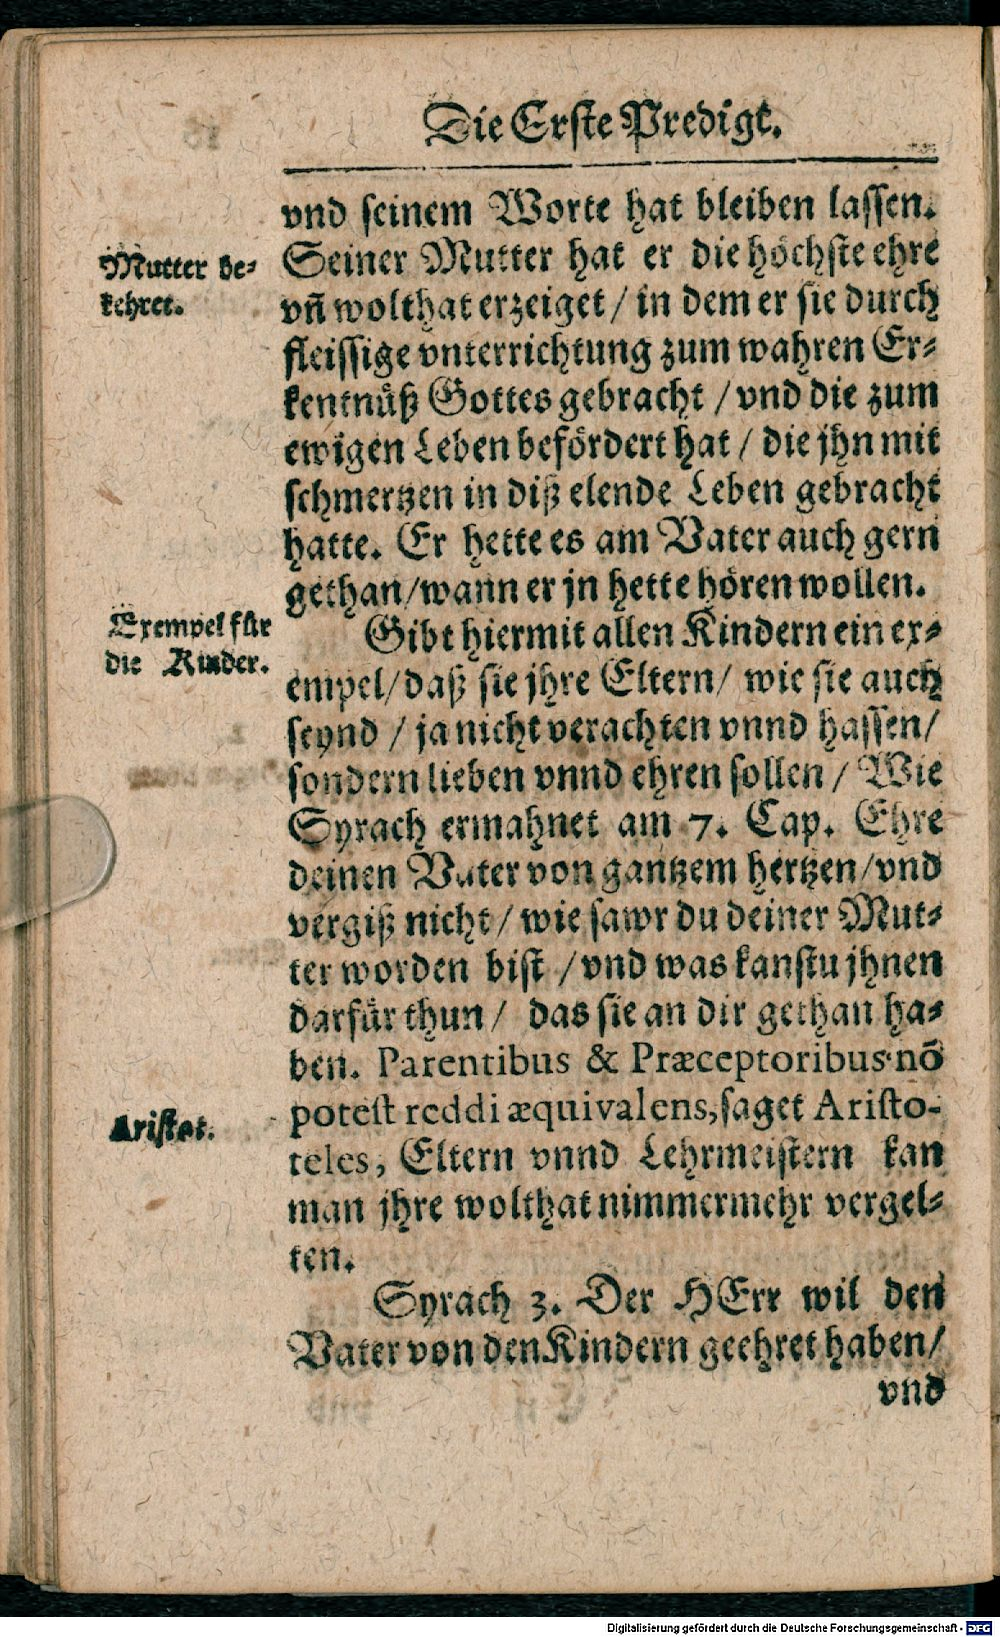 Die Erste Predigt.
vnd seinem Worte hat bleiben lassen.
Seiner Mutter hat er die höchste ehre
vñ wolthat erzeiget / in dem er sie durch
fleissige vnterrichtung zum wahren Er-
kentnüß Gottes gebracht / vnd die zum
ewigen Leben befördert hat / die jhn mit
schmertzen in diß elende Leben gebracht
hatte. Er hette es am Vater auch gern
gethan/wann er jn hette hören wollen.
Mutter be-
kehret.
Gibt hiermit allen Kindern ein ex-
empel/daß sie jhre Eltern/ wie sie auch
seynd / ja nicht verachten vnnd hassen/
sondern lieben vnnd ehren sollen / Wie
Syrach ermahnet am 7. Cap. Ehre
deinen Vater von gantzem hertzen/vnd
vergiß nicht / wie sawr du deiner Mut-
ter worden bist / vnd was kanstu jhnen
darfür thun / das sie an dir gethan ha-
ben. Parentibus & Præceptoribus nō
potest reddi æquivalens, saget Aristo-
teles, Eltern vnnd Lehrmeistern kan
man jhre wolthat nimmermehr vergel-
ten.
Exempel für
die Kinder.
Aristot.
Syrach 3. Der HErr wil den
Vater von den Kindern geehret haben/
vnd
Digitalisierung gefördert durch die Deutsche Forschungsgemeinschaft - DFG